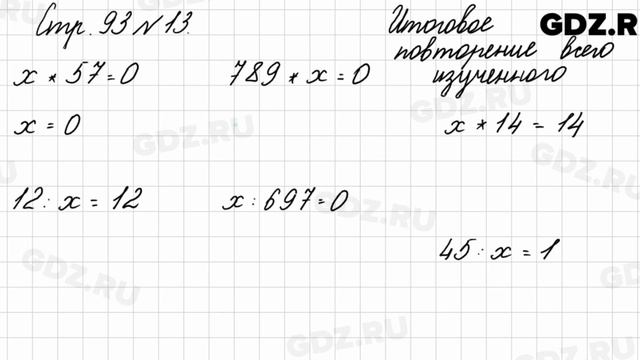 Стр. 93 № 13.
Итоговое
повторение всего
изученного
GDZ.R
x * 57 = 0
789 * x = 0
x = 0
x * 14 = 14
12 : x = 12
x : 697 = 0
45 : x = 1
GDZ.RU
GDZ.RU
GDZ.RU
GDZ.RU
GDZ.RU